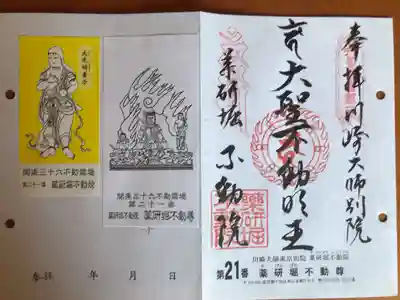 奉拝 川崎大師別院
大聖不動明王
薬研堀 不動院
川崎大師東京別院 薬研堀不動院
第21番 薬研堀不動尊
関東三十六不動霊場
第二十一番 薬研堀不動院
関東三十六不動霊場
第二十一番
薬研堀不動院 薬研堀不動尊
参拝 年 月 日